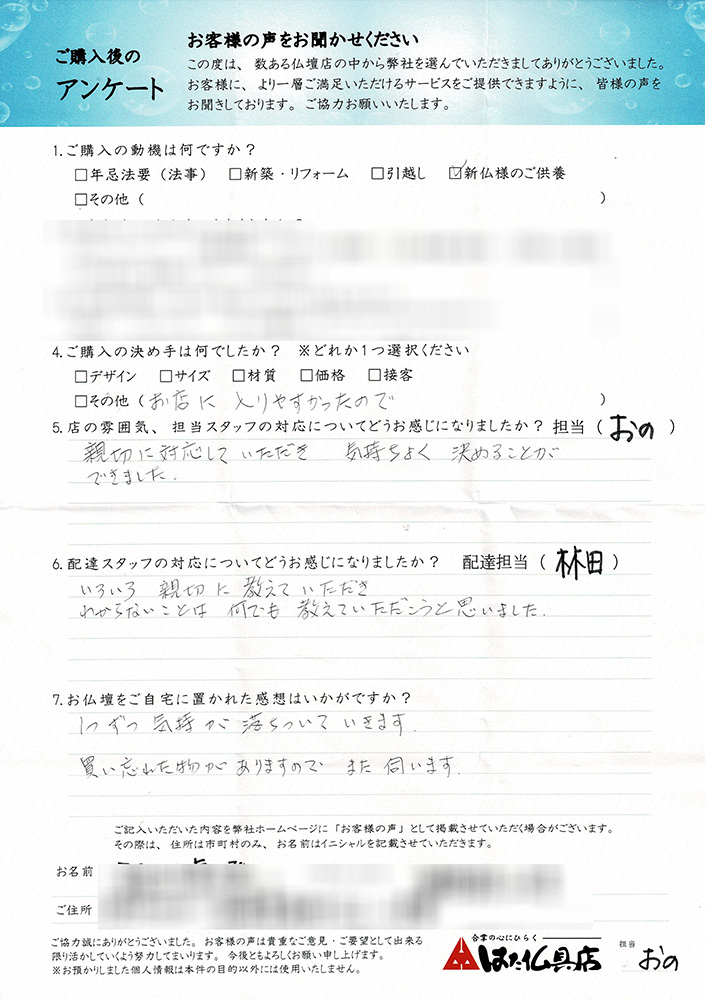 ご購入後の
アンケート
お客様の声をお聞かせください
この度は、数ある仏壇店の中から弊社を選んでいただきましてありがとうございました。
お客様に、より一層ご満足いただけるサービスをご提供できますように、皆様の声を
お聞きしております。ご協力お願いいたします。
1.ご購入の動機は何ですか?
□年忌法要（法事） □新築・リフォーム □引越し ☑新仏様のご供養
□その他（ ）
4.ご購入の決め手は何でしたか? ※どれか1つ選択ください
□デザイン □サイズ □材質 □価格 □接客
□その他（お店に 入りやすかったので ）
5.店の雰囲気、担当スタッフの対応についてどうお感じになりましたか? 担当（おの）
親切に対応して いただき 気持ちよく 決めることが
できました.
6.配達スタッフの対応についてどうお感じになりましたか? 配達担当（林田）
いろいろ 親切に 教えて いただき
わからないことは 何でも 教えていただこうと思いました.
7.お仏壇をご自宅に置かれた感想はいかがですか?
1つずつ 気持が 落ちついて いきます.
買い忘れた物が ありますので また 伺います.
ご記入いただいた内容を弊社ホームページに「お客様の声」として掲載させていただく場合がございます。
その際は、住所は市町村のみ、お名前はイニシャルを記載させていただきます。
お名前
ご住所
ご協力誠にありがとうございました。お客様の声は貴重なご意見・ご要望として出来る
限り活かしていくよう努力してまいります。今後ともよろしくお願い申し上げます。
※お預かりしました個人情報は本件の目的以外には使用いたしません。
合掌の心にひらく
はた仏具店
担当 おの